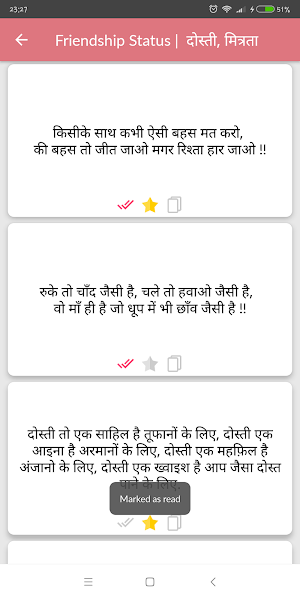 23:27
51%
Friendship Status | दोस्ती, मित्रता
किसीके साथ कभी ऐसी बहस मत करो,
की बहस तो जीत जाओ मगर रिश्ता हार जाओ !!
रुके तो चाँद जैसी है, चले तो हवाओ जैसी है,
वो माँ ही है जो धूप में भी छाँव जैसी है !!
दोस्ती तो एक साहिल है तूफानों के लिए, दोस्ती एक
आइना है अरमानों के लिए, दोस्ती एक महफ़िल है
अंजानो के लिए, दोस्ती एक ख्वाइश है आप जैसा दोस्त
पाने के लिए.
Marked as read